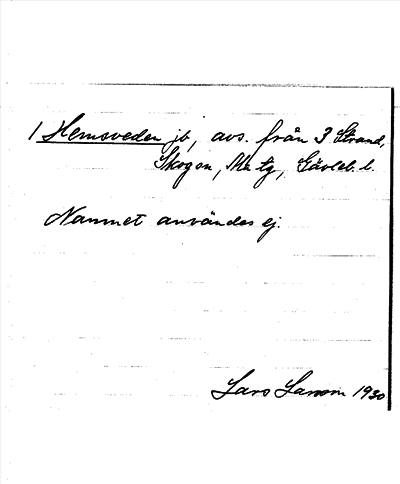 1 Hemsveden jb, avs. från 3 Strand,
Skogen, Ma tg, Gävleb. l.
Namnet användes ej.
Lars Larsson 1930